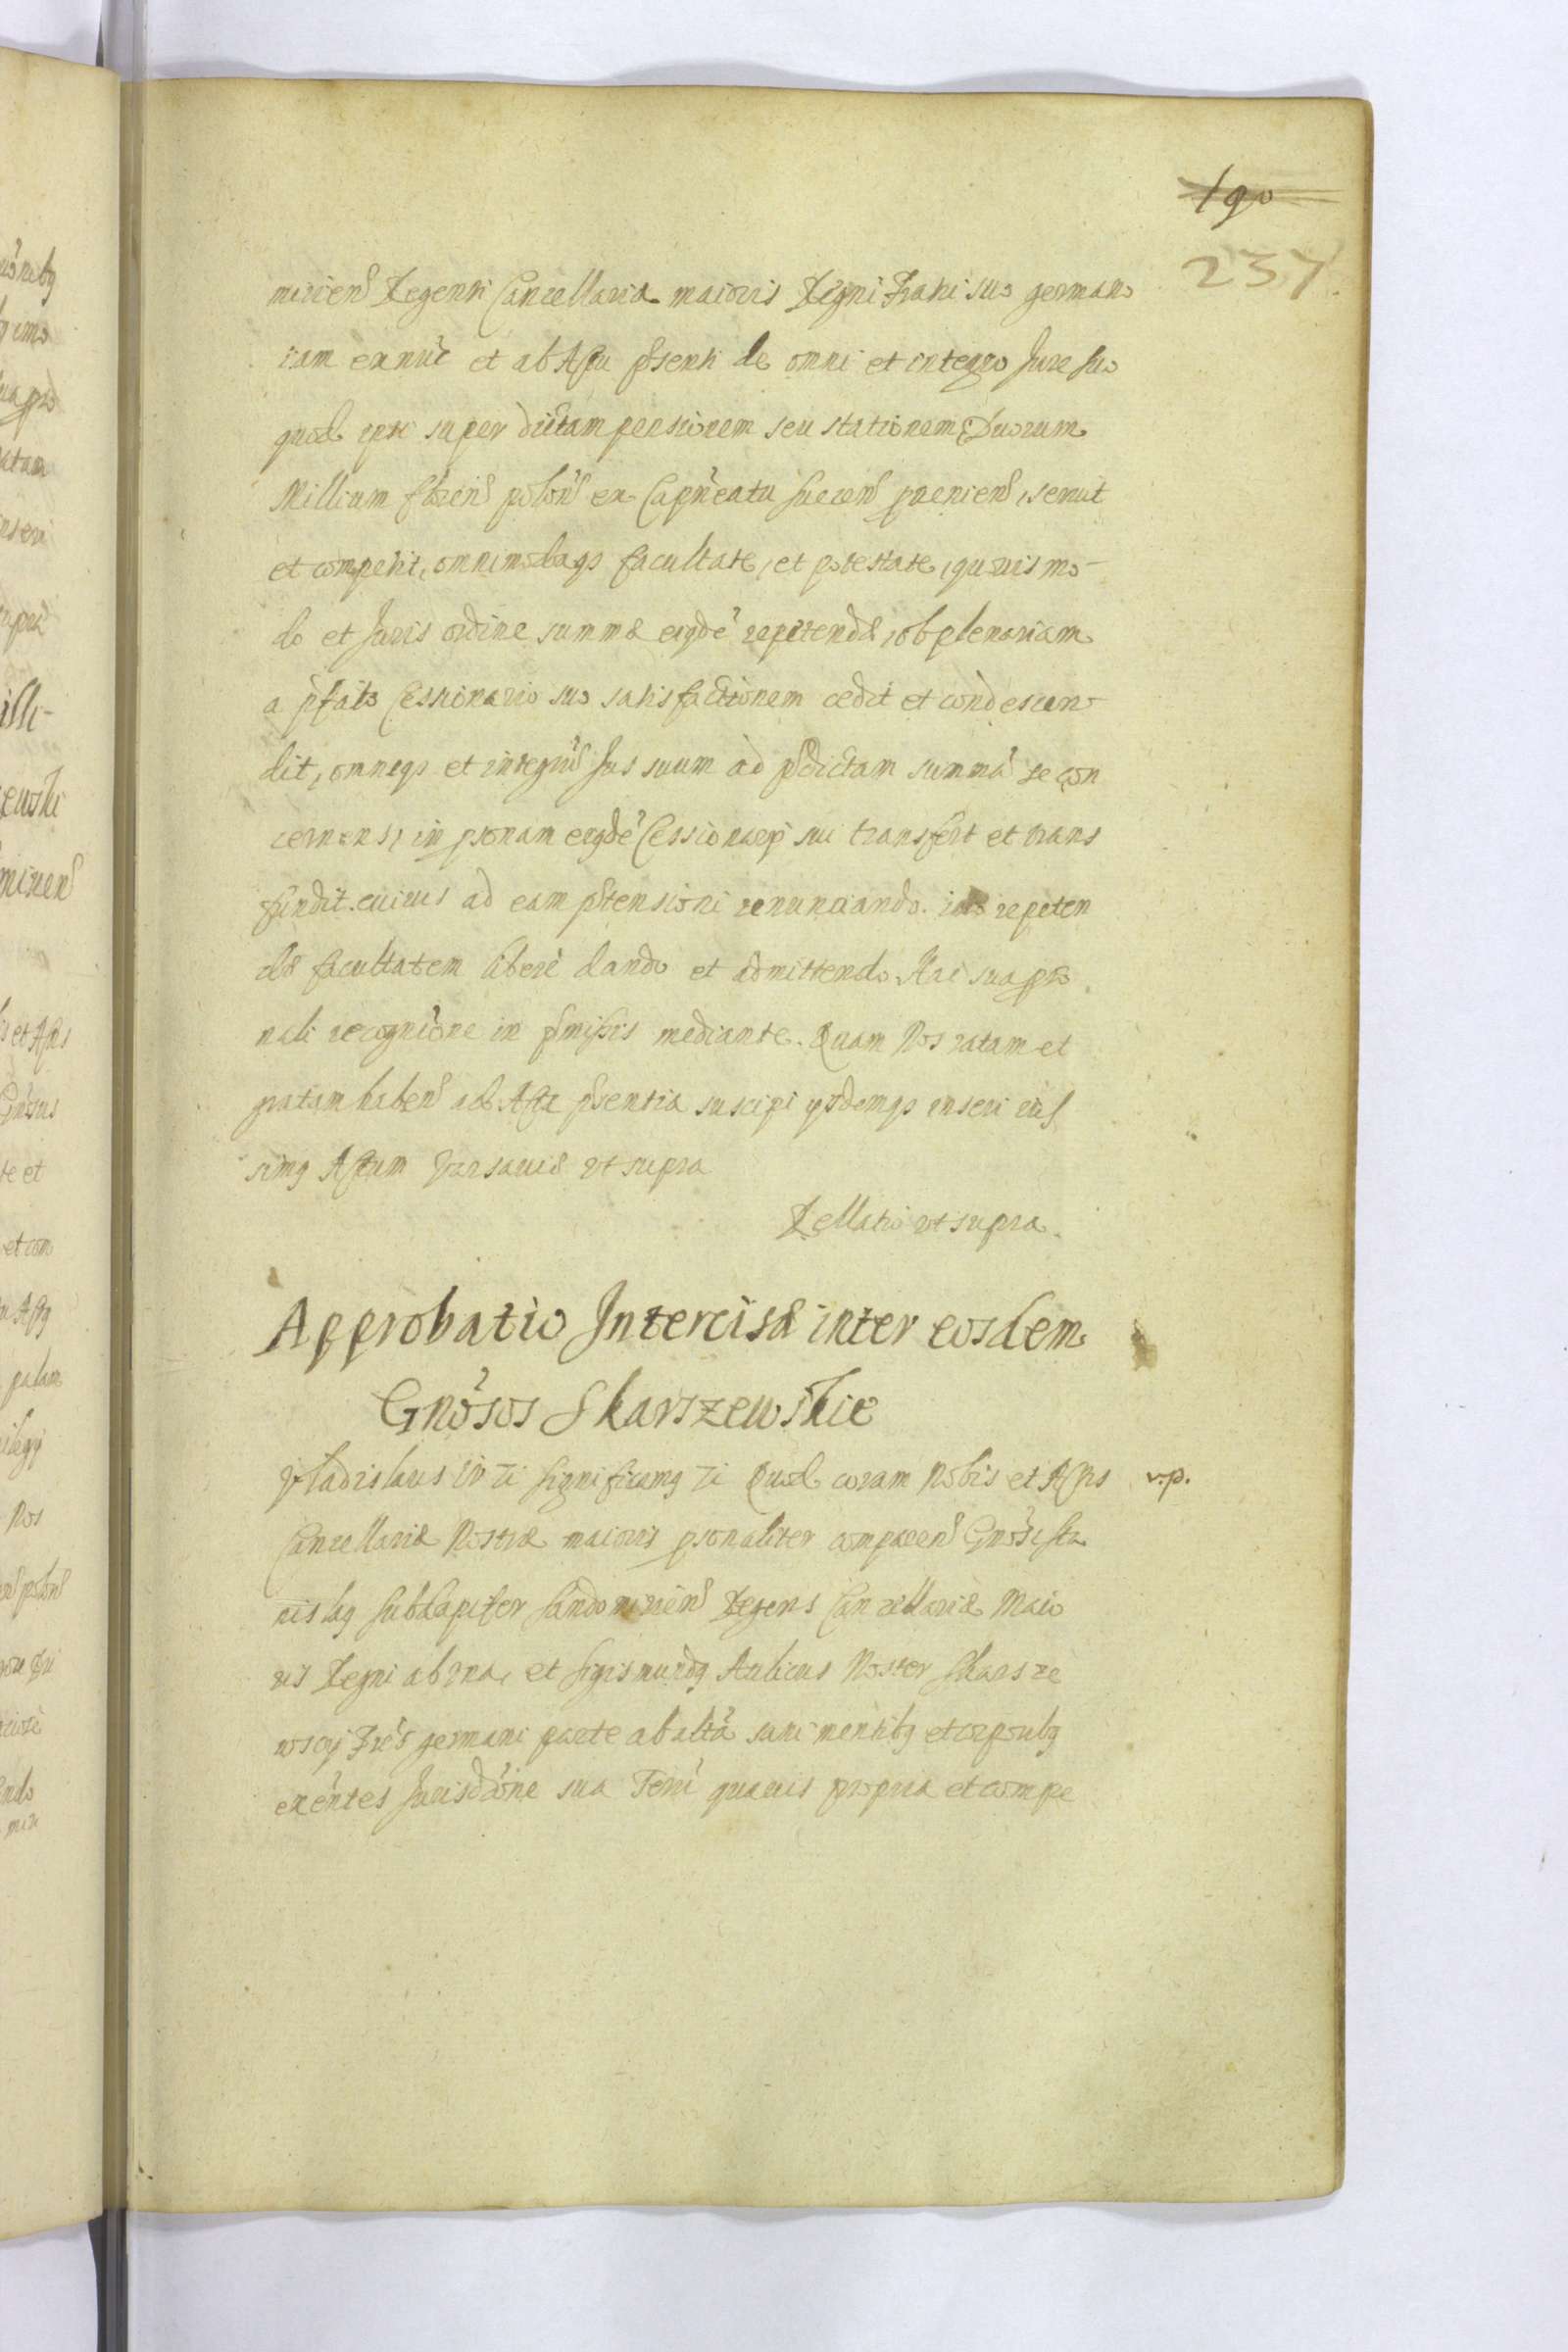 190
237
miriens Regenti Cancellariæ maioris Regni Frãti suo germano
iam exnuc et ab Actu p̃senti de omni et integro Jure suo
quod ipsi super dictam pensionem seu stationem Duorum
Millium floren̄ polon̄ ex Cap̃neatu ... p̱uenien̄, seruit
et competit, omnimodaq̃ facultate, et potestate, quouis mo-
do et Juris ordine summæ eiq̃dẽ repetendæ, ob plenariam
a p̃fato Cessionario suo satisfactionem cedit et condescen-
dit, omneq̃ et integrũ Jus suum ad p̃dictam summã se con
cernens, in p̱sonam eiq̃dẽ Cessionarij sui transfert et trans
fundit. cuiuis ad eam p̃tensioni renunciando. ... repeten
dæ facultatem liberè dando et admittendo. Hac sua p̱so
nali recognĩone in p̃missis mediante. Quam Nos ratam et
gratam haben̄ ad Acta p̃sentia suscipi ijsdemq̃ inseri iũs
simq̃ Actum Varsauiæ vt supra
Rellatio vt supra.
Approbatio Intercisæ inter eosdem
Gnõsos Skarszewskie
Vladislaus IV Ti significamq̃ Ti Quod coram Nobis et Actis v.p.
Cancellariæ Nostræ maioris p̱sonaliter comparen̄ Gnõsi Sta
nislaq̃ Subdapifer Sandomirien̄ Regens Cancellariæ Maio
ris Regni ab vna, et Sigismundq̃ Aulicus Noster Skarsze
wscij Frẽs germani parte ab altã sani mentibq̃ et corporibq̃
exẽntes Jurisdc̃õne sua Terrĩ quauis propria et compe